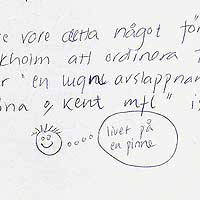 se vore detta något för
ckholm att ordinera
r "en lugn avslappnan
öna & Kent mfl" i
livet på
en pinne